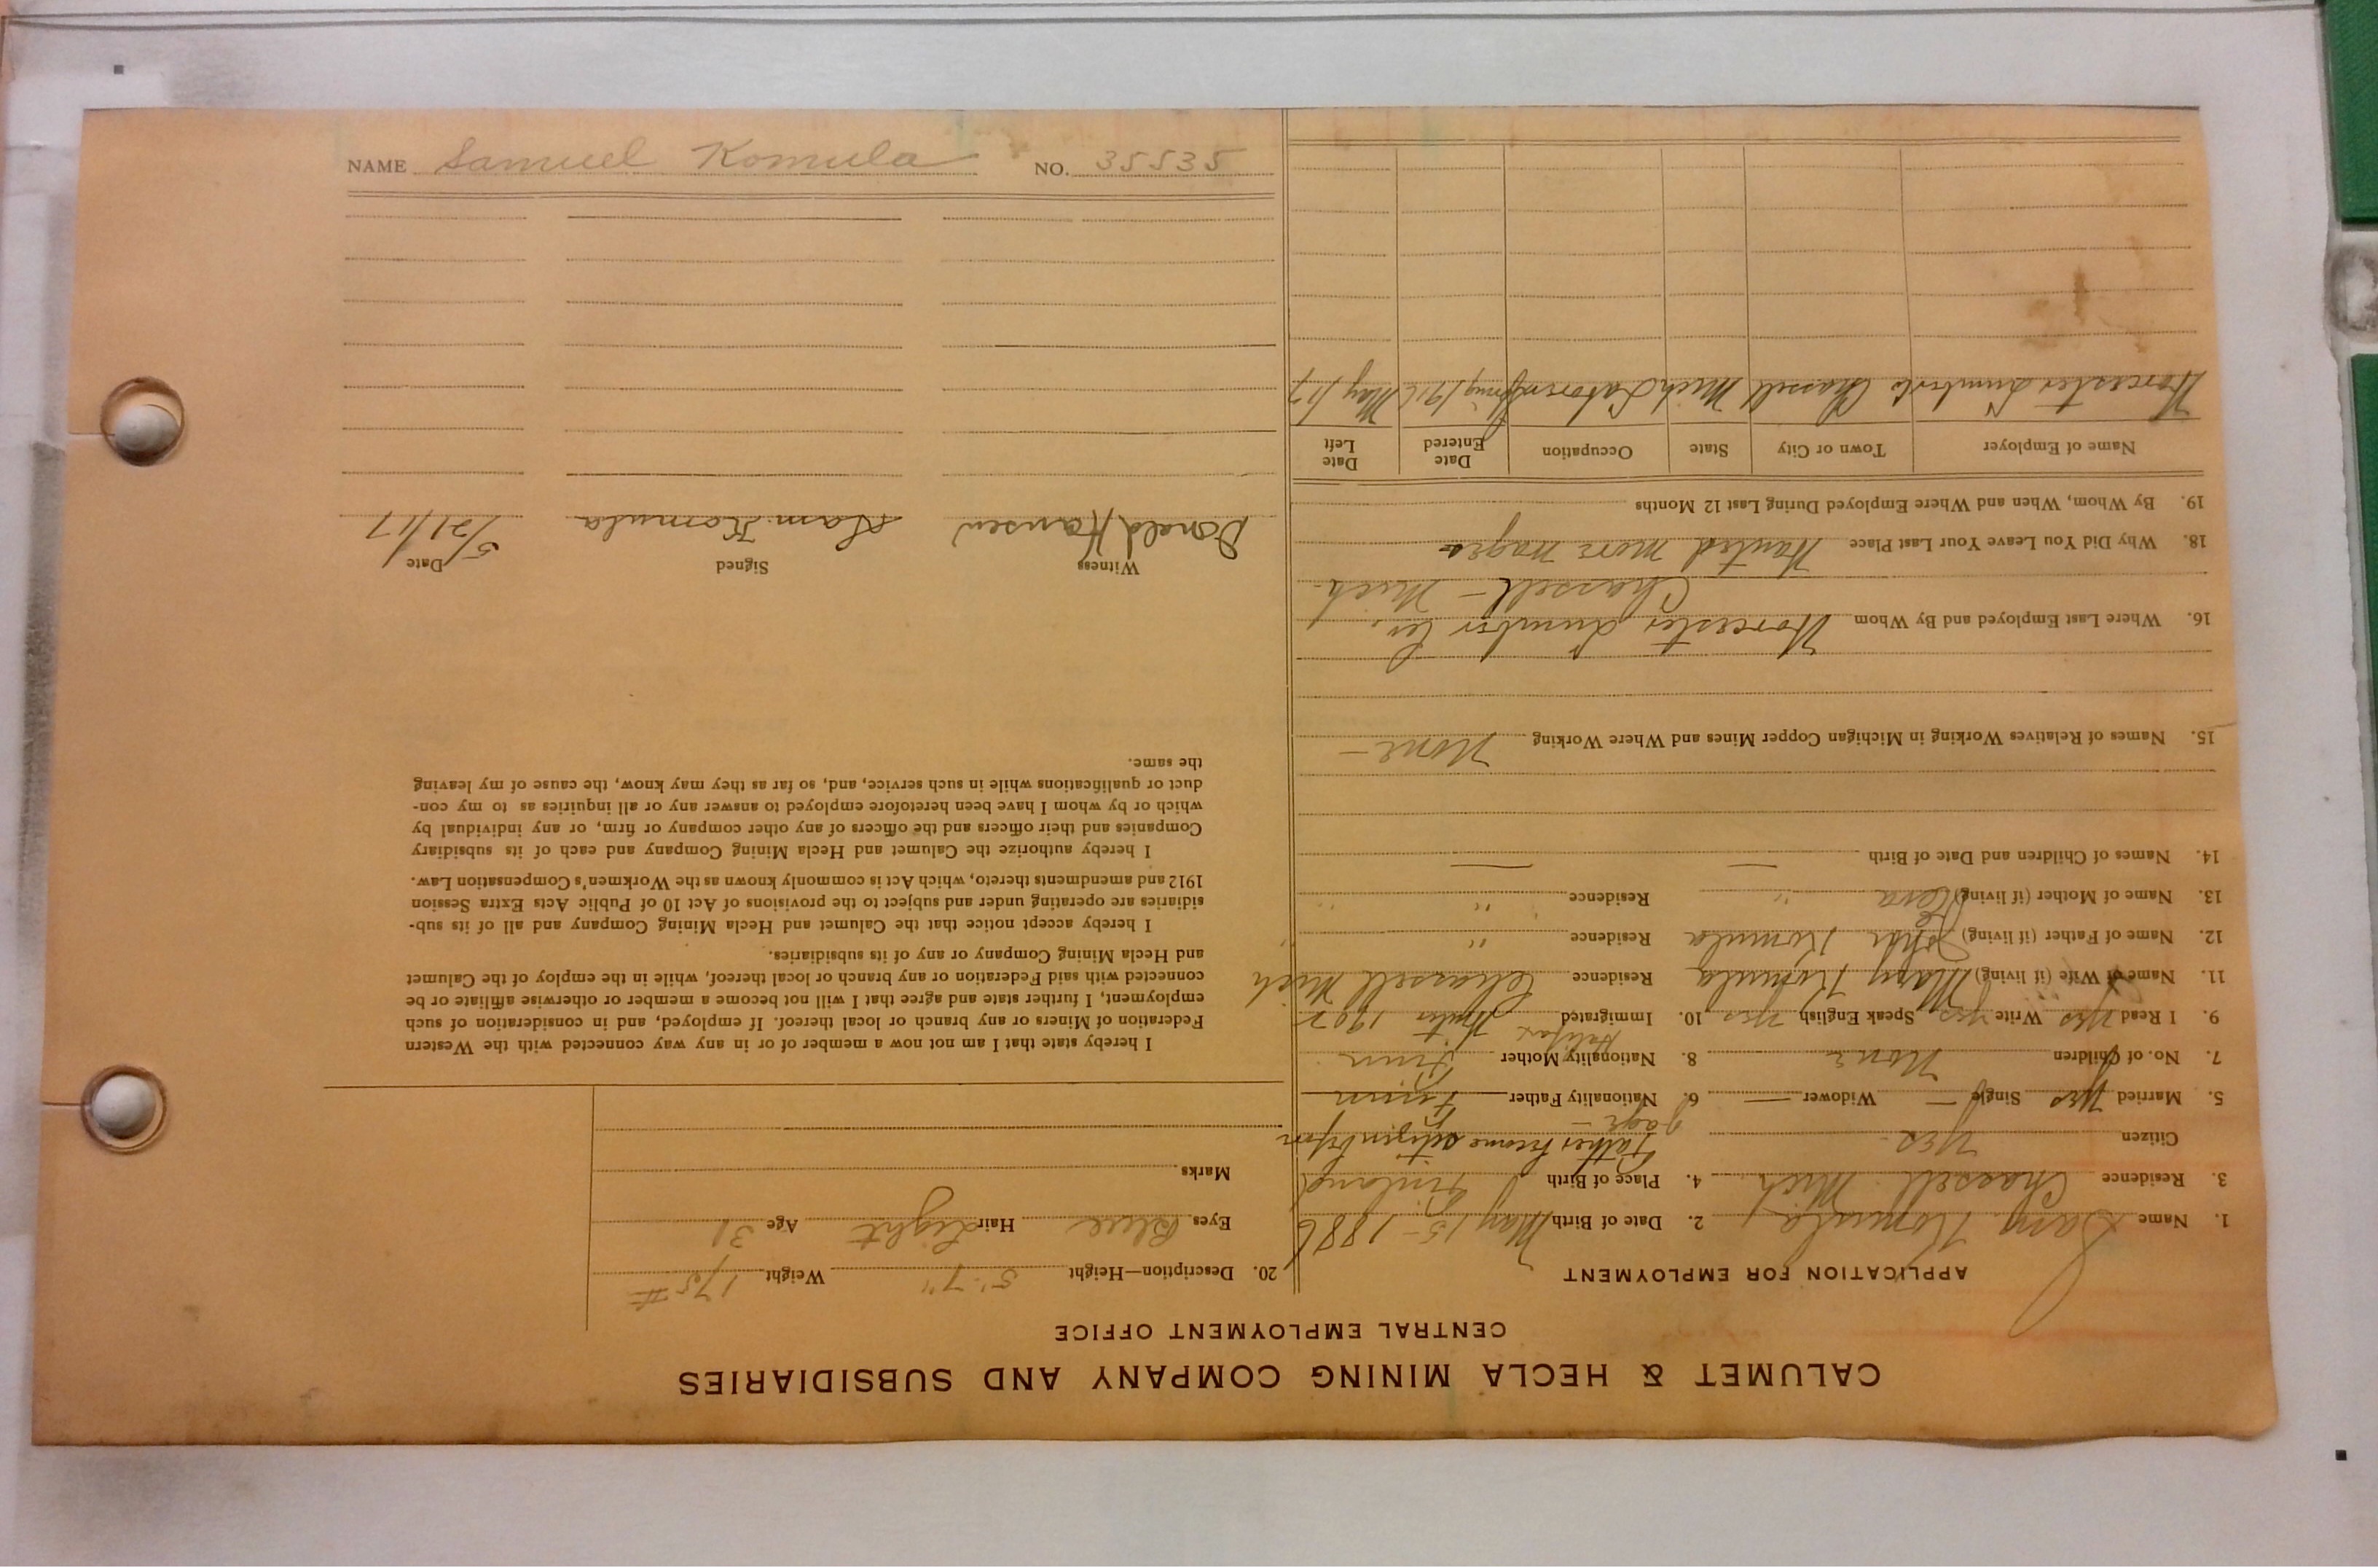 CALUMET & HECLA MINING COMPANY AND SUBSIDIARIES
CENTRAL EMPLOYMENT OFFICE
APPLICATION FOR EMPLOYMENT
1. Name Sam. Komula 2. Date of Birth May 15 - 1886
3. Residence Chassell Mich 4. Place of Birth Finland
Citizen Yes - Father became citizen before
age -
5. Married Yes Single — Widower — 6. Nationality Father Finn
7. No. of Children None 8. Nationality Mother Finn
Halifax
9. I Read Yes Write Yes Speak English Yes 10. Immigrated Winter
11. Name of Wife (if living) Mary Komula Residence Chassell Mich
12. Name of Father (if living) John Komula Residence " "
13. Name of Mother (if living) " Residence " "
14. Names of Children and Date of Birth — —
15. Names of Relatives Working in Michigan Copper Mines and Where Working None —
16. Where Last Employed and By Whom Worcester Lumber Co.
Chassell - Mich -
18. Why Did You Leave Your Last Place Wanted more wages
19. By Whom, When and Where Employed During Last 12 Months
Name of Employer Town or City State Occupation Date Entered Date Left
Worcester Lumber Co Chassell Mich Laborer Spring 1916 May /17
20. Description—Height 5'-7" Weight 175 #
Eyes Blue Hair Light Age 31
Marks
I hereby state that I am not now a member of or in any way connected with the Western
Federation of Miners or any branch or local thereof. If employed, and in consideration of such
employment, I further state and agree that I will not become a member or otherwise affiliate or be
connected with said Federation or any branch or local thereof, while in the employ of the Calumet
and Hecla Mining Company or any of its subsidiaries.
I hereby accept notice that the Calumet and Hecla Mining Company and all of its sub-
sidiaries are operating under and subject to the provisions of Act 10 of Public Acts Extra Session
1912 and amendments thereto, which Act is commonly known as the Workmen's Compensation Law.
I hereby authorize the Calumet and Hecla Mining Company and each of its subsidiary
Companies and their officers and the officers of any other company or firm, or any individual by
which or by whom I have been heretofore employed to answer any or all inquiries as to my con-
duct or qualifications while in such service, and, so far as they may know, the cause of my leaving
the same.
Witness Signed Date
Donald Hansen Sam. Komula 5/21/17
NAME Samuel Komula NO. 35535